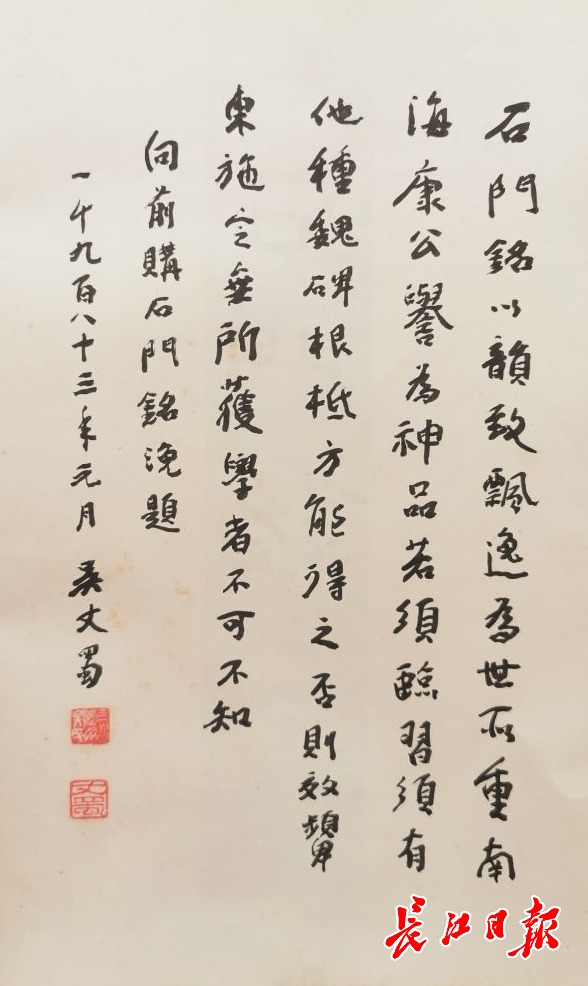 石門銘以韻致飄逸為世所重南
海康公譽為神品若須臨習須有
他種魏碑根柢方能得之否則效顰
東施定無所獲學者不可不知
向前購石門銘浼題
一千九百八十三年元月 吳丈蜀
丈蜀
長江日报